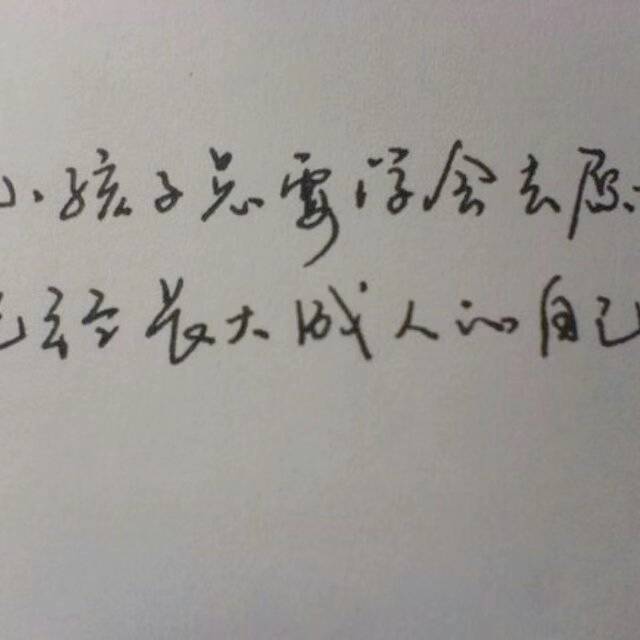 小孩子总要学会去原
已经长大成人的自己